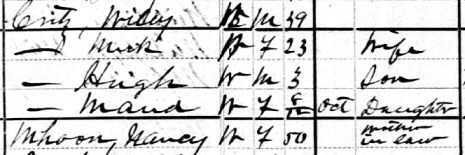 Critz, Wiley W M 39
— Mick W F 23 Wife
— Hugh W M 3 Son
— Maud W F 8/12 Oct Daughter
Mhoon, Nancy W F 50 mother in law